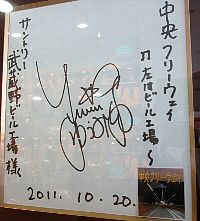 中央フリーウェイ
左はビール工場〜
サントリー
武蔵野ビール工場様
2011.10.20.
中央フリーウェイ